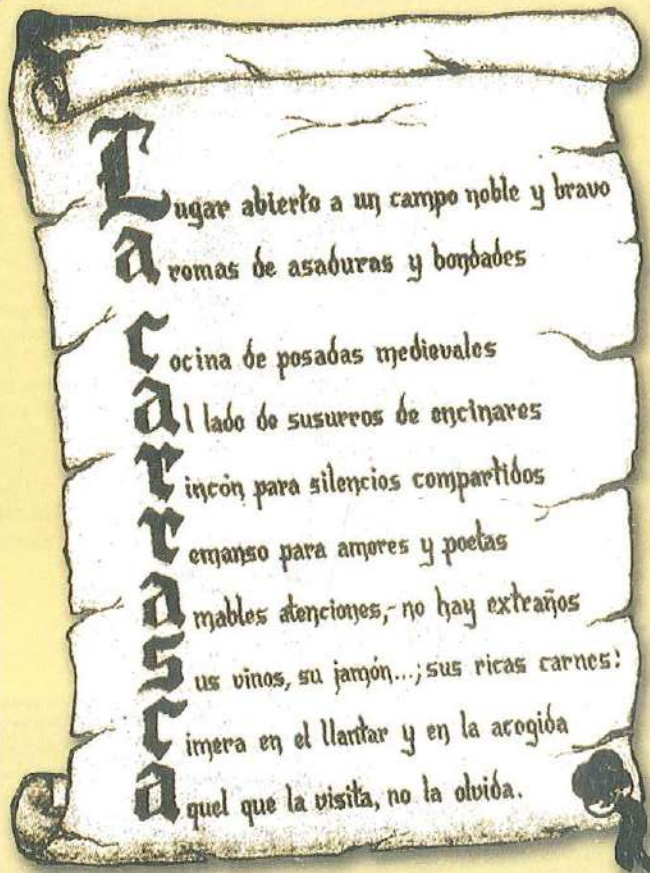 Lugar abierto a un campo noble y bravo
aromas de asaduras y bondades
Cocina de posadas medievales
al lado de susurros de encinares
rincón para silencios compartidos
remanso para amores y poetas
amables atenciones,- no hay extraños
Sus vinos, su jamón...¡sus ricas carnes!
Cimera en el llantar y en la acogida
aquel que la visita, no la olvida.